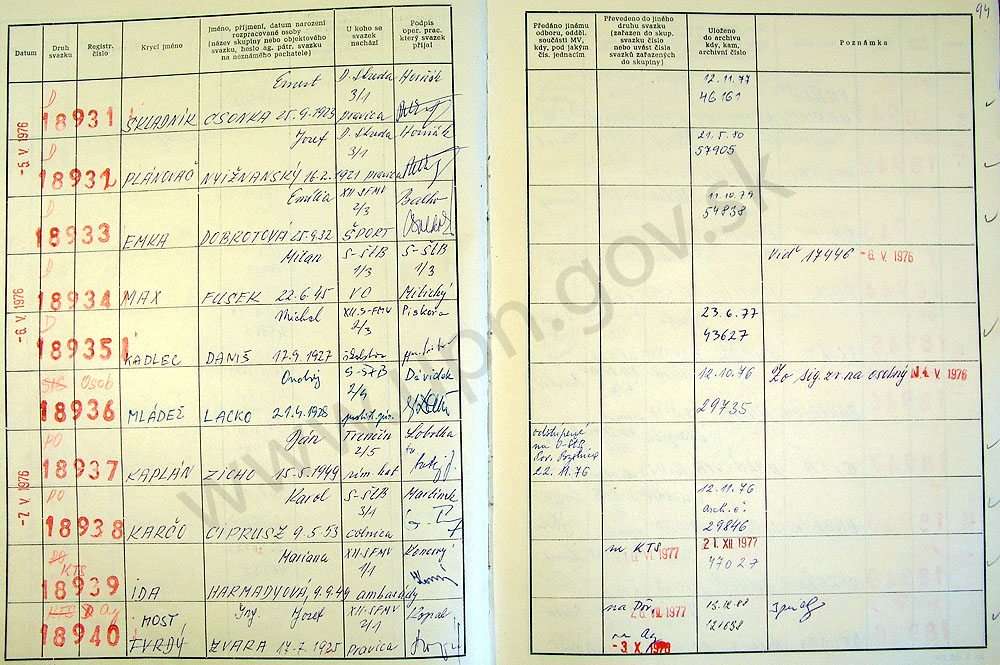 94
Datum
Druh svazku
Registr. číslo
Krycí jméno
Jméno, příjmení, datum narození
rozpracované osoby
(název skupiny nebo objektového
svazku, heslo ag. pátr. svazku
na neznámého pachatele)
U koho se
svazek
nachází
Podpis
oper. prac.
který svazek
přijal
Předáno jinému
odboru, odděl.
součásti MV,
kdy, pod jakým
čís. jednacím
Převedeno do jiného
druhu svazku
(zařazen do skup.
svazku číslo
nebo uvést čísla
svazků zařazených
do skupiny)
Uloženo
do archivu
kdy, kam,
archivní číslo
Poznámka
-5. V. 1976
D
18931
SKLADNÍK
Ernest
OSONKA 25.9.1923
D. Streda
3/1
pravica
Horňák
12.11.77
46161
D
18932
PLÁNOVAČ
Jozef
NYIŽNANSKÝ 16.2.1921
D. Streda
3/1
pravica
Horňák
21.5.80
57905
18933
EMKA
Emília
DOBROTOVÁ 25.9.32
XII. SFMV
2/3
ŠPORT
11.10.79
54838
-6. V. 1976
D
18934
MAX
Milan
FUSEK 22.6.45
S-ŠtB
1/3
VO
S-ŠtB
1/3
viď 17446 -6. V. 1976
D
18935
KADLEC
Michal
DANIŠ 17.9.1927
XII.S-FMV
2/3
Piskora
23.6.77
43627
Osob
18936
MLÁDEŽ
Ondrej
LACKO 21.4.1928
S-ŠtB
Dávidek
12.10.76
29735
Zo sig.zv. na osobný V. 1976
-7. V. 1976
PO
18937
KAPLÁN
Ján
ZICHO 15.5.1949
Trenčín
2/5
rím. kat
odstúpené
na O-ŠtB
22.11.76
PO
18938
KARČO
Karol
CIPRUSZ 9.5.53
S-ŠtB
3/1
colnica
Martinek
12.11.76
arch. č.
29846
KTS
18939
IDA
Mariana
HARMADYOVÁ, 9.9.49
XII-SFMV
1/1
ambasády
na KTS
1977
21. XII 1977
47027
KTS D Ag
18940
MOST
TVRDÝ
Ing. Jozef
ZVARA 17.7.1925
XII-SFMV
2/1
Pravica
Kopal
1977
na Ag
-3 X.
www.upn.gov.sk